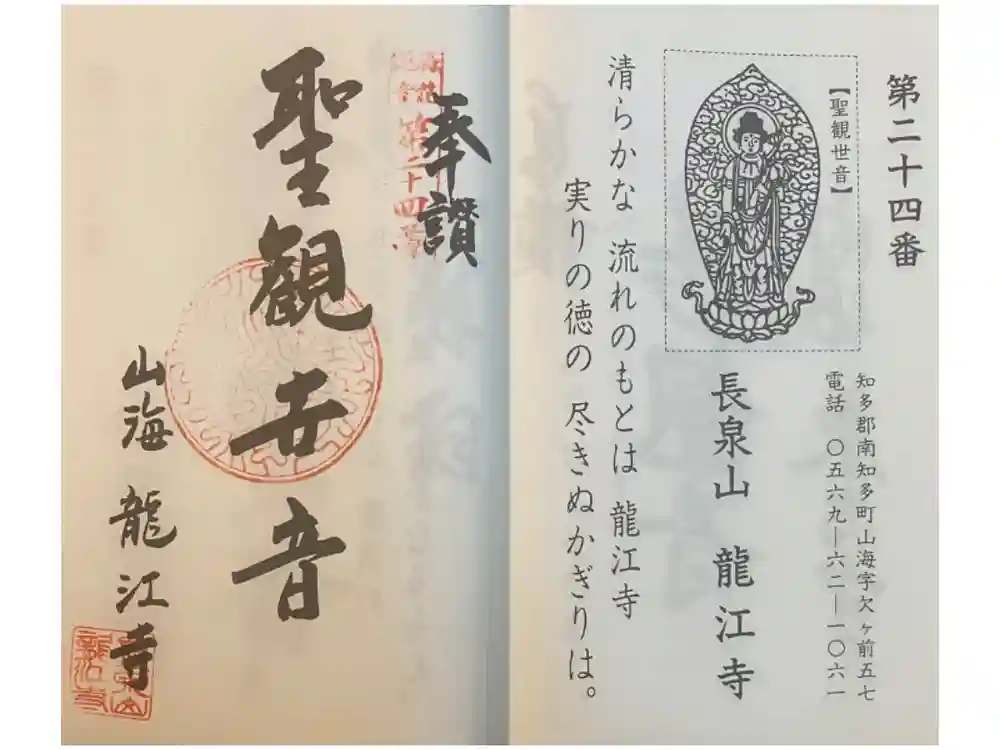 第二十四番
【聖観世音】
知多郡南知多町山海字欠ヶ前五七
電話 〇五六九―六二―一〇六一
長泉山 龍江寺
清らかな 流れのもとは 龍江寺
実りの徳の 尽きぬかぎりは。
奉讃
第二十四番
聖観世音
山海 龍江寺